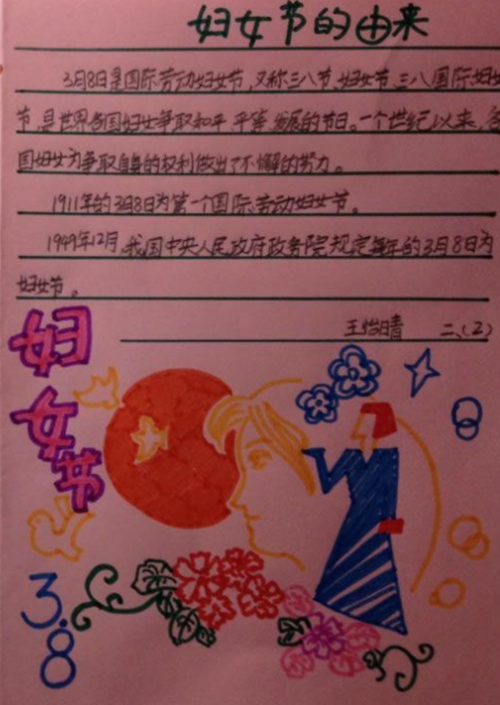 妇女节的由来
3月8日是国际劳动妇女节,又称三八节、妇女节、三八国际妇女
节,是世界各国妇女争取和平、平等、发展的节日。一个世纪以来,各
国妇女为争取自身的权利做出了不懈的努力。
1911年的3月8日为第一个国际劳动妇女节。
1949年12月,我国中央人民政府政务院规定每年的3月8日为
妇女节。
王怡晴 二、(2)
妇女节
3.8